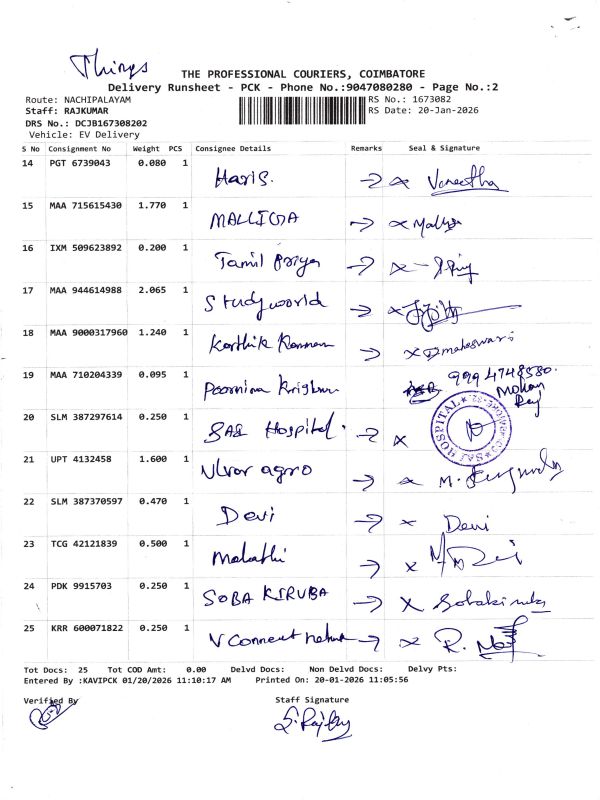 Things
THE PROFESSIONAL COURIERS, COIMBATORE
Delivery Runsheet - PCK - Phone No.:9047080280 - Page No.:2
Route: NACHIPALAYAM RS No.: 1673082
Staff: RAJKUMAR RS Date: 20-Jan-2026
DRS No.: DCJB167308202
Vehicle: EV Delivery
S No Consignment No Weight PCS Consignee Details Remarks Seal & Signature
14 PGT 6739043 0.080 1 Haris. → x Vaneetha
15 MAA 715615430 1.770 1 MALLIGA → x Malliga
16 IXM 509623892 0.200 1 Tamil priya → x
17 MAA 944614988 2.065 1 Study world → x
18 MAA 9000317960 1.240 1 Karthik Kannan → x D.maheswari
19 MAA 710204339 0.095 1 Poornima Krishna 999 4748580.
Mohan
Raj
20 SLM 387297614 0.250 1 Hospital. → x
HOSPITAL
21 UPT 4132458 1.600 1 agro → x M.
22 SLM 387370597 0.470 1 Devi → x Devi
23 TCG 42121839 0.500 1 Malathi → x
24 PDK 9915703 0.250 1 SOBA KIRUBA → x Sobakiruba
25 KRR 600071822 0.250 1 V Connect → x R.
Tot Docs: 25 Tot COD Amt: 0.00 Delvd Docs: Non Delvd Docs: Delvy Pts:
Entered By :KAVIPCK 01/20/2026 11:10:17 AM Printed On: 20-01-2026 11:05:56
Verified By Staff Signature